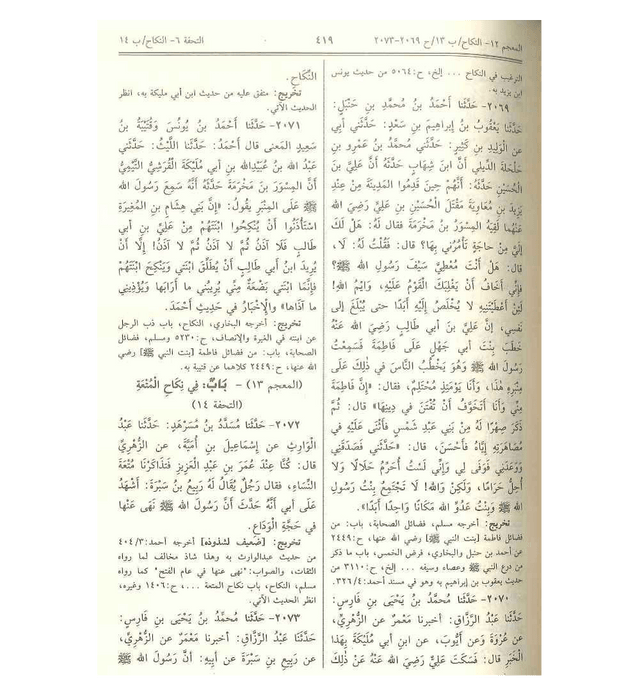 المعجم ١٢- النكاح/ ب ١٣/ح ٢٠٦٩-٢٠٧٣
٤١٩
التحفة ٦- النكاح/ب ١٤
الترغب في النكاح ... إلخ، ح:٥٠٦٤ من حديث يونس
ابن يزيد به.
٢٠٦٩- حَدَّثَنا أَحْمَدُ بنُ مُحمَّدِ بنِ حَنْبَلٍ:
حَدَّثَنا يَعْقُوبُ بنُ إِبراهِيمَ بنِ سَعْدٍ: حَدَّثَني أَبِي
عن الْوَلِيدِ بنِ كَثِيرٍ: حَدَّثَني مُحمَّدُ بنُ عَمْرِو بنِ
حَلْحَلَةَ الدِّيلي أَنَّ ابنَ شِهَابٍ حَدَّثَهُ أَنَّ عَلِيَّ بنَ
الْحُسَيْنِ حَدَّثَهُ: أَنَّهُمْ حِينَ قَدِمُوا المَدِينَةَ مِنْ عِنْدِ
يَزِيدَ بنِ مُعَاوِيَةَ مَقْتَلَ الْحُسَيْنِ بنِ عَلِيٍّ رَضِيَ الله
عَنْهُما لَقِيَهُ المِسْوَرُ بنُ مَخْرَمَةَ فقالَ لَهُ: هَلْ لَكَ
إِلَيَّ مِنْ حَاجَةٍ تَأْمُرُني بِهَا؟ قال: فَقُلْتُ لَهُ: لَا،
قال: هَلْ أَنْتَ مُعْطِيَّ سَيْفَ رَسُولِ الله ﷺ؟
فإِنِّي أَخَافُ أَنْ يَغْلِبَكَ الْقَوْمُ عَلَيْهِ، وَايْمُ الله!
لَئِنْ أَعْطَيْتَنِيهِ لا يُخْلَصُ إِلَيْهِ أَبَدًا حتى يُبْلَغَ إلى
نَفسِي، إنَّ عَلِيَّ بنَ أبي طالِبٍ رَضِيَ الله عَنْهُ
خَطَبَ بِنْتَ أَبي جَهْلٍ عَلَى فَاطِمَةَ فَسَمِعْتُ
رسولَ الله ﷺ وَهُوَ يَخْطُبُ النَّاسَ في ذَلِكَ عَلَى
مِنْبَرِهِ هٰذَا، وَأَنا يَوْمَئِذٍ مُحْتَلِمٌ، فقال: «إنَّ فاطِمَةَ
مِنِّي وَأَنا أَتَخَوَّفُ أَنْ تُفْتَنَ في دِينِهَا» قال: ثُمَّ
ذَكَرَ صِهْرًا لَهُ مِنْ بَني عَبْدِ شَمْسٍ فأَثْنَى عَلَيْهِ في
مُصَاهَرَتِهِ إِيَّاهُ فأَحْسَنَ، قال: «حَدَّثَني فَصَدَقَني
وَوَعَدَني فَوَفَى لِي وَإِنِّي لَسْتُ أُحَرِّمُ حَلَالًا وَلا
أُحِلُّ حَرَامًا، وَلكِنْ وَالله! لَا تَجْتَمِعُ بِنْتُ رسولِ
الله ﷺ وَبِنْتُ عَدُوِّ الله مَكَانًا وَاحِدًا أَبَدًا».
تخريج: أخرجه مسلم، فضائل الصحابة، باب: من
فضائل فاطمة [بنت النبي ﷺ] رضي الله عنها، ح:٢٤٤٩
عن أحمد بن حنبل والبخاري، فرض الخمس، باب ما ذكر
من درع النبي ﷺ وعصاه وسيفه ... إلخ، ح:٣١١٠ من
حديث يعقوب بن إبراهيم به وهو في مسند أحمد:٣٢٦/٤.
٢٠٧٠- حَدَّثَنا مُحمَّدُ بنُ يَحْيَى بنِ فَارِسٍ:
حَدَّثَنا عَبْدُ الرَّزَّاقِ: أخبرنا مَعْمَرٌ عن الزُّهْرِيِّ،
عن عُرْوَةَ وَعن أَيُّوبَ، عن ابنِ أبي مُلَيْكَةَ بِهَذَا
الْخَبَرِ قال: فَسَكَتَ عَلِيٌّ رَضِيَ الله عَنْهُ عَنْ ذَلِكَ
النِّكَاحِ.
تخريج: متفق عليه من حديث ابن أبي مليكة به، انظر
الحديث الآتي.
٢٠٧١- حَدَّثَنا أَحْمَدُ بنُ يُونُسَ وَقُتَيْبَةُ بنُ
سَعِيدٍ المعنى قال أَحمَدُ: حَدَّثَنا اللَّيْثُ: حَدَّثَني
عَبْدُ الله بنُ عُبَيْدِالله بنِ أبي مُلَيْكَةَ الْقُرَشِيُّ التَّيْمِيُّ
أَنَّ المِسْوَرَ بنَ مَخْرَمَةَ حَدَّثَهُ أَنَّهُ سَمِعَ رَسُولَ الله
ﷺ عَلَى المِنْبَرِ يقُولُ: «إِنَّ بَني هِشَامِ بنِ المُغِيرَةِ
اسْتَأْذَنُوا أَنْ يُنْكِحُوا ابْنَتَهُمْ مِنْ عَلِيِّ بنِ أبي
طالِبٍ فَلَا آذَنُ ثُمَّ لا آذَنُ ثُمَّ لا آذَنُ! إِلَّا أَنْ
يُرِيدَ ابنُ أبي طالِبٍ أَنْ يُطَلِّقَ ابْنَتِي وَيَنْكِحَ ابْنَتَهُمْ
فإِنَّمَا ابْنَتِي بَضْعَةٌ مِنِّي يُرِيبُني ما أَرَابَهَا وَيُؤْذِيني
ما آذَاها» وَالإِخْبَارُ في حَدِيثِ أَحْمَدَ.
تخريج: أخرجه البخاري، النكاح، باب ذب الرجل
عن ابنته في الغيرة والإنصاف، ح:٥٢٣٠ ومسلم، فضائل
الصحابة، باب: من فضائل فاطمة [بنت النبي ﷺ] رضي
الله عنها، ح:٢٤٤٩ كلاهما عن قتيبة به.
(المعجم ١٣) - بَابٌ: فِي نِكَاحِ الْمُتْعَةِ
(التحفة ١٤)
٢٠٧٢- حَدَّثَنا مُسَدَّدُ بنُ مُسَرْهَدٍ: حَدَّثَنا عَبْدُ
الْوَارِثِ عن إِسْمَاعِيلَ بنِ أُمَيَّةَ، عن الزُّهْرِيِّ
قال: كُنَّا عِنْدَ عُمَرَ بنِ عَبْدِ الْعَزِيزِ فَتَذَاكَرْنَا مُتْعَةَ
النِّسَاءِ، فقال رَجُلٌ يُقَالُ لَهُ رَبِيعُ بنُ سَبْرَةَ: أَشْهَدُ
عَلَى أَبي أَنَّهُ حَدَّثَ أَنَّ رَسُولَ الله ﷺ نَهَى عَنْهَا
في حَجَّةِ الْوَدَاعِ.
تخريج: [ضعيف لشذوذه] أخرجه أحمد:٤٠٤/٣
من حديث عبدالوارث به وهذا شاذ مخالف لما رواه
الثقات، والصواب: "نهى عنها في عام الفتح" كما رواه
مسلم، النكاح، باب نكاح المتعة ...، ح:١٤٠٦ وغيره،
انظر الحديث الآتي.
٢٠٧٣- حَدَّثَنا مُحمَّدُ بنُ يَحْيَى بنِ فَارِسٍ:
حَدَّثَنا عَبْدُ الرَّزَّاقِ: أخبرنا مَعْمَرٌ عن الزُّهْرِيِّ،
عن رَبِيعِ بنِ سَبْرَةَ عن أَبِيهِ: أَنَّ رَسُولَ الله ﷺ